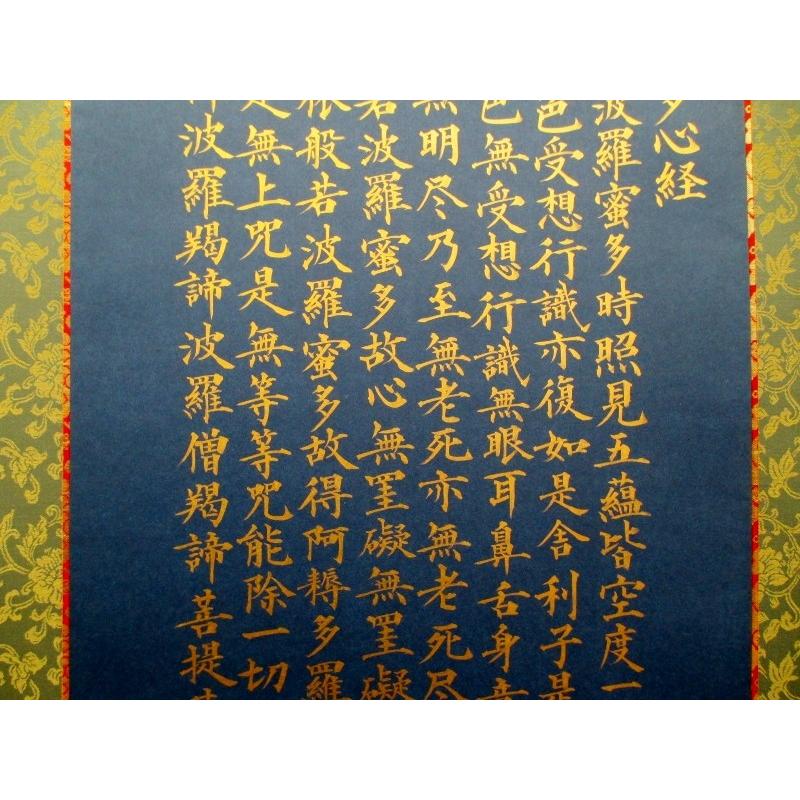 多心経
波羅蜜多時照見五蘊皆空度一
色受想行識亦復如是舎利子是
色無受想行識無眼耳鼻舌身意
無明尽乃至無老死亦無老死尽
若波羅蜜多故心無罣礙無罣礙
依般若波羅蜜多故得阿耨多羅
是無上咒是無等等咒能除一切
波羅羯諦波羅僧羯諦菩提